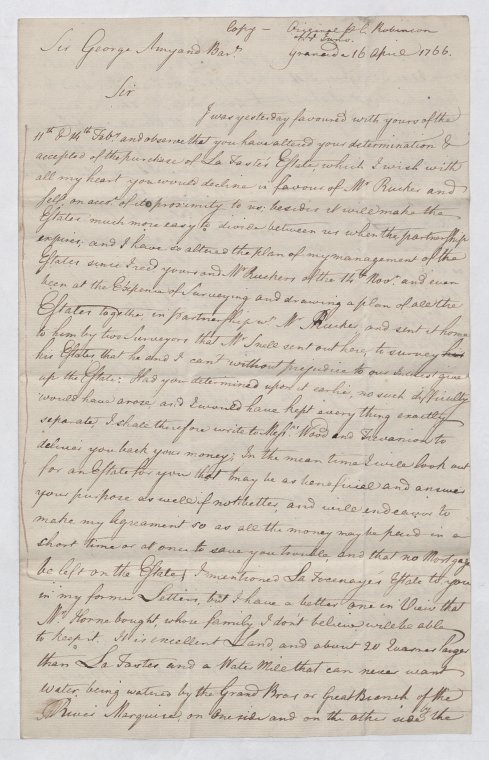 Copy - Original p C. Robinson
Sir George Amyand Bart. Grenada 16 April 1766.
Sir
I was yesterday favoured with yours of the
11th & 14th Febr. and observe that you have altered your determination &
accepted of the purchase of La Taste's Estate, which I wish with
all my heart you would decline in favour of Mr. Rucker and
self on acct. of its proximity to us; besides it will make the
Estates much more easy to divide between us when the partnership
expires, and I have so altered the plan of my management of the
Estates since I reced yours and Mr. Ruckers of the 14th Novr. and even
been at the Expence of Surveying and drawing a plan of all the
Estates together, in partnership wt. Mr. Rucker, and sent it home
to him by two Surveyors that Mr. Snell sent out here, to survey
his Estates that he dnd I cant without prejudice to our Interest give
up the Estate: Had you determined upon it earlie, no such difficulty
would have arose and I would have kept every thing exactly
separate, I shall therefore write to Messrs. Wood and Trevanion to
deliver you back your money; In the mean time I will look out
for an Estate for you that may be as beneficial and answer
your purpose as well if not better, and will endeavor to
make my Agreement so as all the money may be paid in a
short time or at once to save you trouble, and that no Mortgage
be left on the Estate; I mentioned La Focenayes Estate to you
in my former Letters, but I have a better one in View that
Mr. Horne bought, whose family I dont believe will be able
to keep it. It is excellent Land, and about 20 Quarrees larger
than La Tastes and a Water Mill that can never want
water, being watered by the Grand Bras or Great Branch of the
River Marquise, on one side and on the other side of the